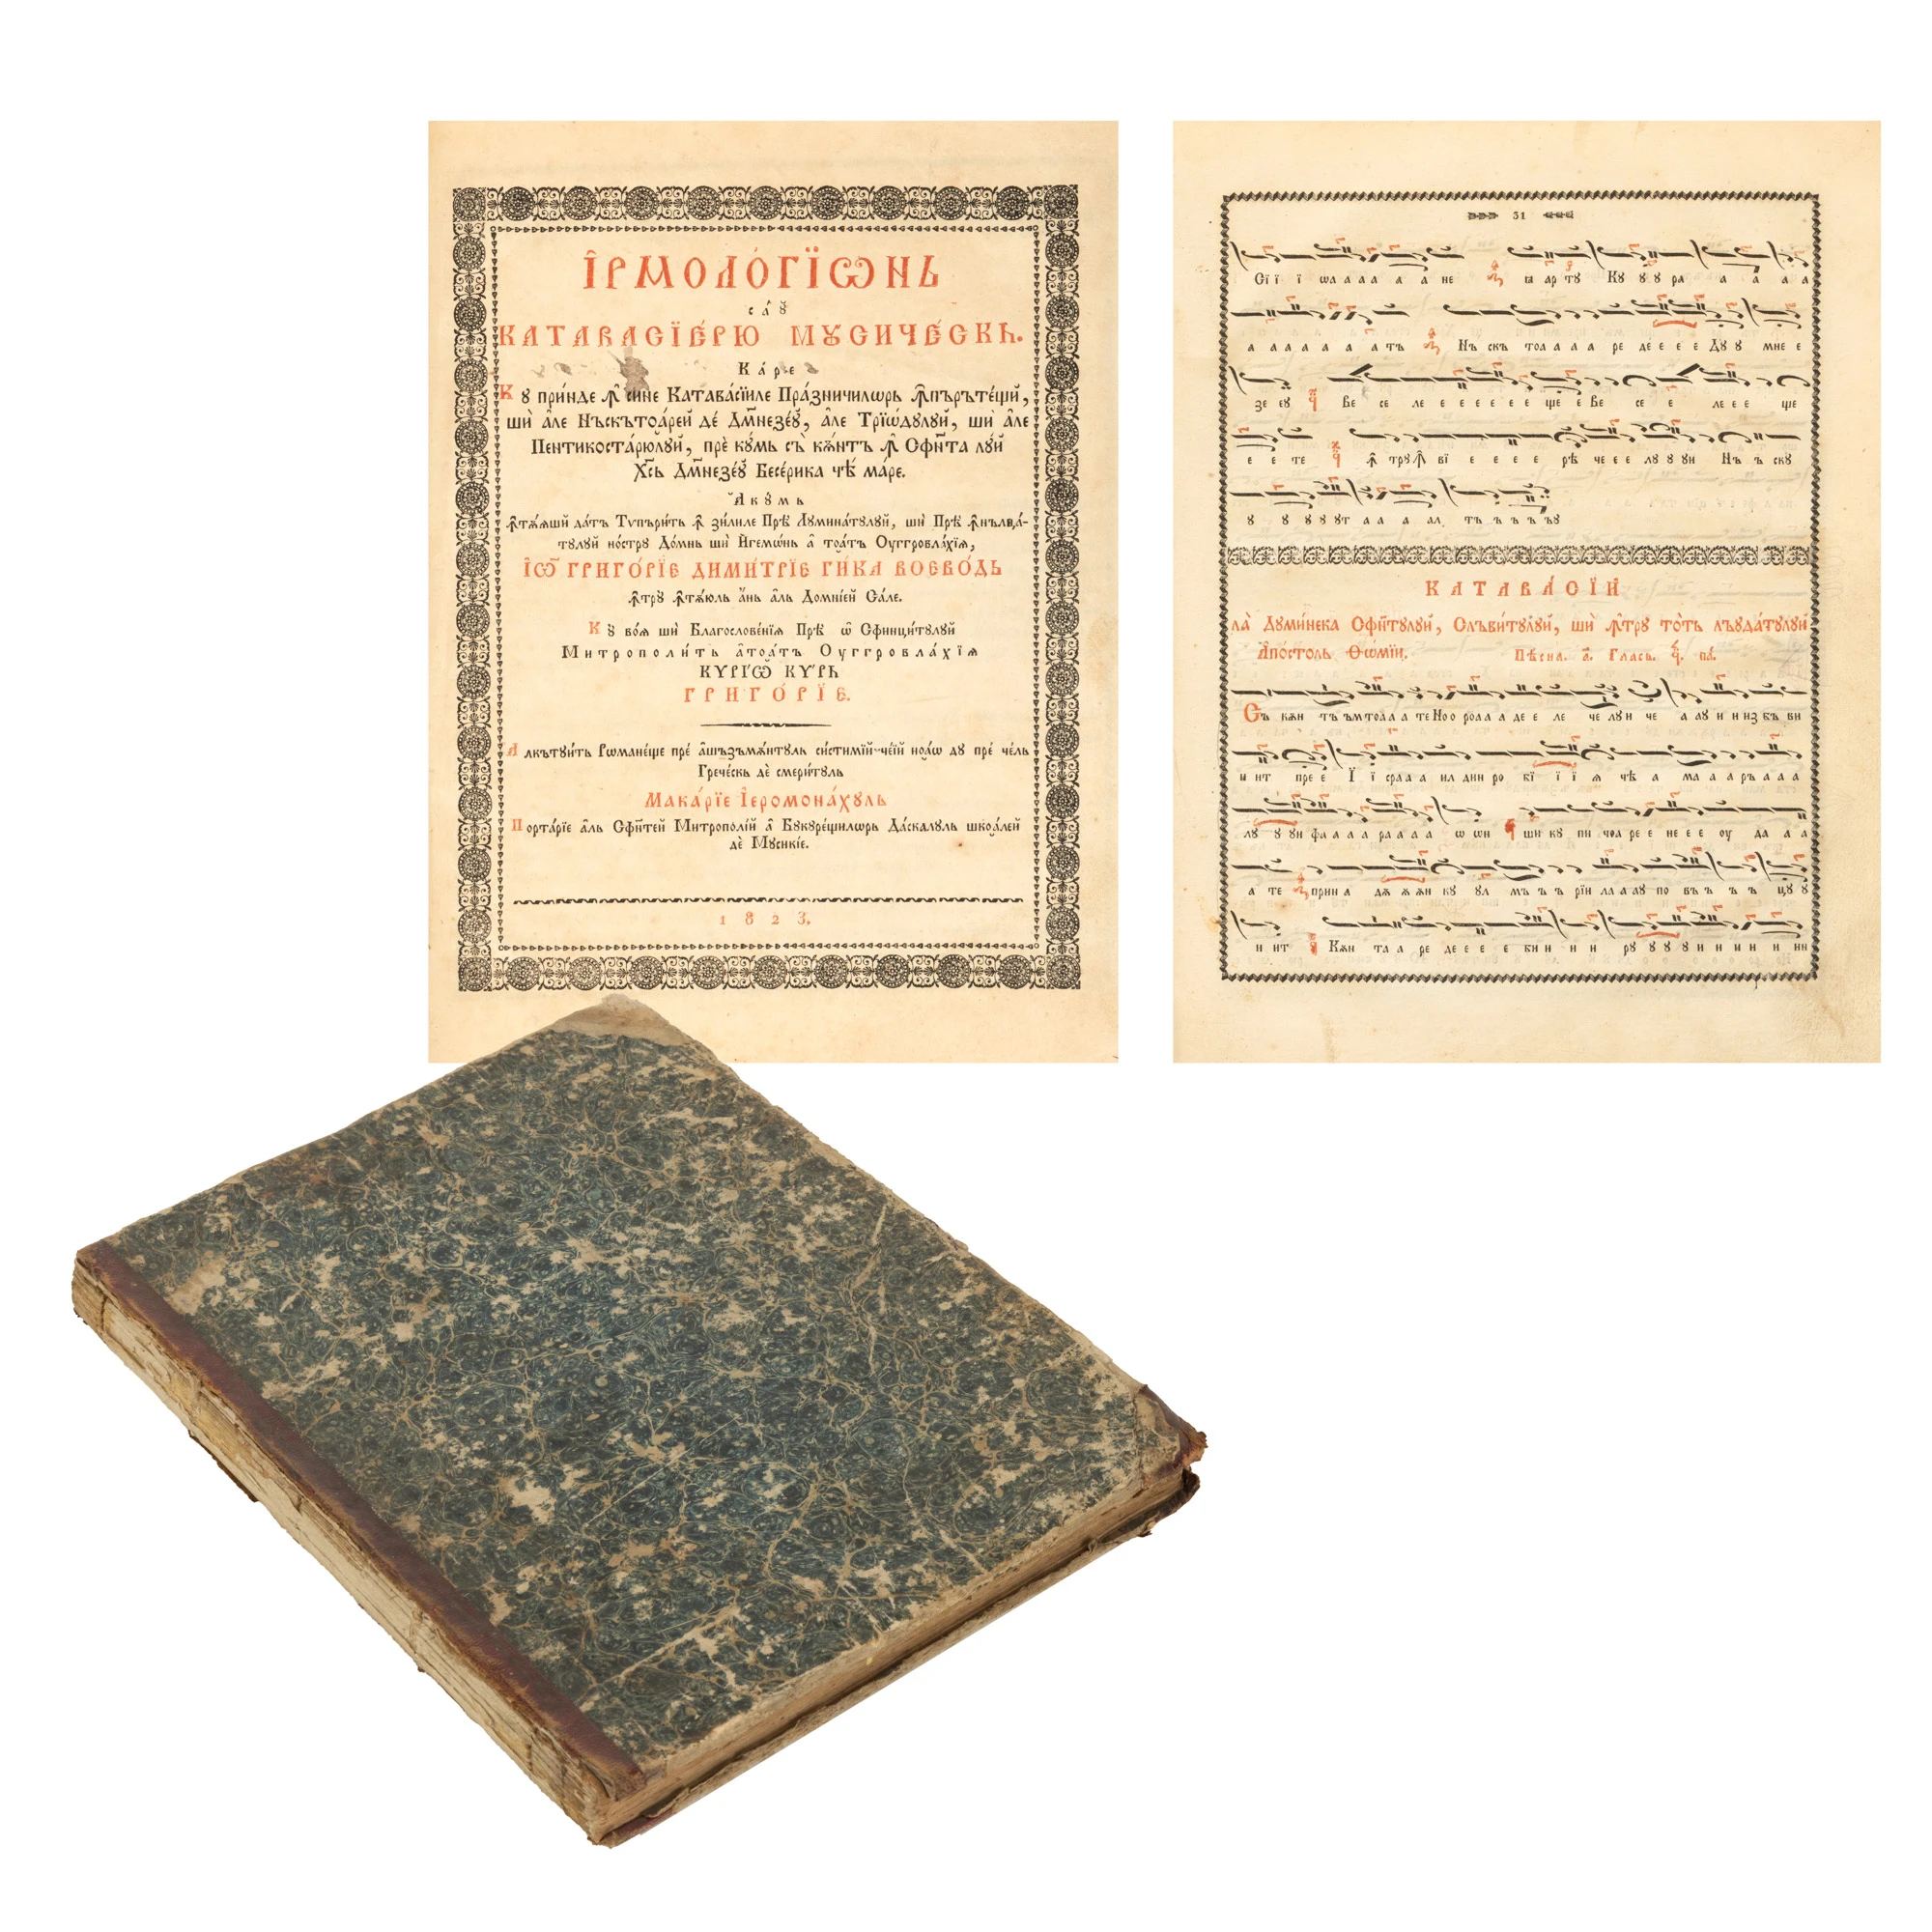 І҆РМОЛО́ГЇѠНЬ
са́ꙋ
КАТАВАСЇЕ́РЮ МꙊСИЧЕ́СКЬ.
Ка́ре
Кꙋ при́нде ꙟ҆ сине Катава́сїиле Пра́зничилѡрь ꙟ҆пърѣте́щй,
шѝ а҆ле Нъскътоа́рей де́ Дм҃незе́ꙋ, а҆ле Трїѡ́дꙋлꙋй, шѝ а҆ле
Пентикоста́рюлꙋй, прѐ кꙋ́мь съ̀ кѫ́нтъ ꙟ҆ Сфн҃та лꙋй
Хс҃ь Дм҃незе́ꙋ Бесе́рика чѣ́ ма́ре.
Акꙋмь
ꙟ҆тѫ́ѧшй да́тъ Тѵпъри́тъ ꙟ҆ зи́лиле Прѣ̀ Лꙋмина́тꙋлꙋй, шѝ Прѣ̀ ꙟ҆нълца́-
тꙋлꙋй но́стрꙋ До́мнь шѝ И҆гемѡ́нь а҆ тоа́тъ Оуггровла́хїѧ,
І҆Ѡ҃ ГРИГО́РЇЕ ДИМИ́ТРЇЕ ГИ́КА ВОЕВО́ДЬ
ꙟ҆трꙋ ꙟ҆тѫ́юль а҆нь а҆ль Домні́ей Са́ле.
Кꙋ̀ во́ѧ шѝ Благослове́нїѧ Прѣ̀ ѡ҆ Сфинци́тꙋлꙋй
Митрополи́тъ а҆тоа́тъ Оуггровла́хїѧ
КѴРЇѠ҃ КѴРЬ
ГРИГО́РЇЕ.
Алкътꙋи́тъ Рѡмане́ще прѐ а҆шъзъмѫ́нтꙋль систи́мїй че́їй ноа́ѡ дꙋ пре́ че́ль
Грече́скь дѐ смери́тꙋль
Мака́рїе І҆еромона́хꙋль
Порта́рїе а҆ль Сфн҃тей Митропо́лїй а҆ Бꙋкꙋре́щилѡрь Да́скалꙋль шкоа́лей
дѐ Мꙋсикі́е.
1823.
31
Сї ї ї ѡл а а а а а не ви ар тꙋ Кꙋ ꙋ ꙋ ра а а а а
а а а а а а атъ Нъ скъ тоа а а ре де е е е Дꙋ ꙋ мне е
зе еꙋ Ве се ле е е е е е е ще е Ве се е ле е е ще
е е те ꙟ҆ трꙋ ꙟ҆ вї е е е е рѣ че е е лꙋ ꙋ ꙋи Нъ ъ скꙋ
ꙋ ꙋ ꙋ ꙋ ꙋт а а а ал тъ ъ ъ ъ ъꙋ
КАТАВА́СЇИ
ла̀ Дꙋми́нека Сфн҃тꙋлꙋй, Слъви́тꙋлꙋй, шѝ ꙟ҆трꙋ то́тъ лъꙋда́тꙋлꙋй
А҆по́столь Ѳѡми́н. Пѣ́сна. а҃. Гласъ. па́.
Съ кѫн тъ ъм тоа а а те Но о роа а а де е ле че лꙋи че а аꙋ и и из бъ ви
и ит пре е І ї сра а а ил дин ро бї ї ї ѧ чѣ а ма а а ръ а а а
лꙋ ꙋ ꙋи фа а а а ра а а а ѡ ѡн ши кꙋ пи чоа ре е не е е оу да а а
а те прин а дѫ ѫ ѫн кꙋ ꙋл мъ ъ ъ рїи ла а аꙋ по въ ъ ъ ъ цꙋ ꙋ
и ит Кѫн та а ре де е е е е би и и и рꙋ ꙋ ꙋ ꙋ ꙋи и и и и ин